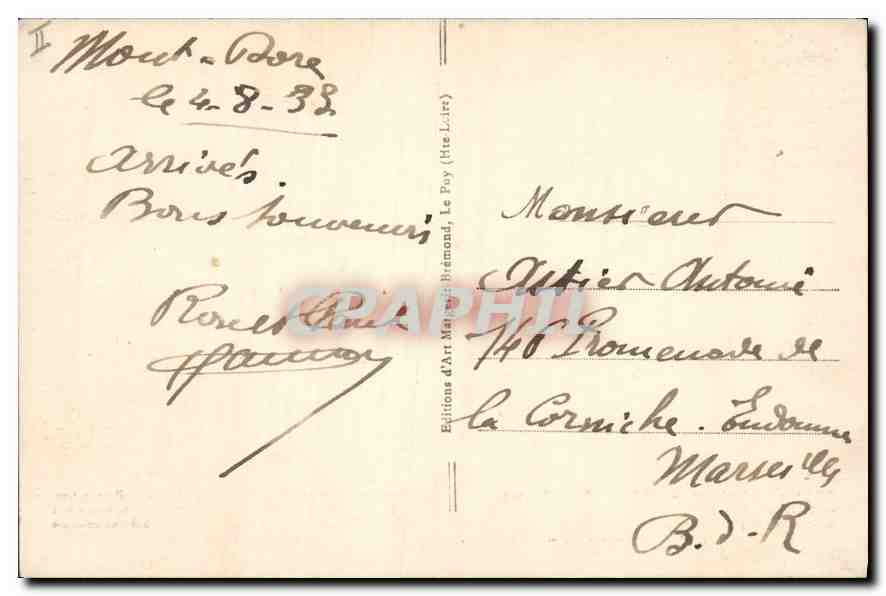 II
Mont-Dore
le 4-8-33
Arrivés.
Bons souvenirs
Rose et
Editions d'Art Margerit-Brémond, Le Puy (Hte-Loire)
Monsieur
Astier Antoine
146 Promenade de
la Corniche. Endoume
Marseille
B.-d-R
CPAPHIL